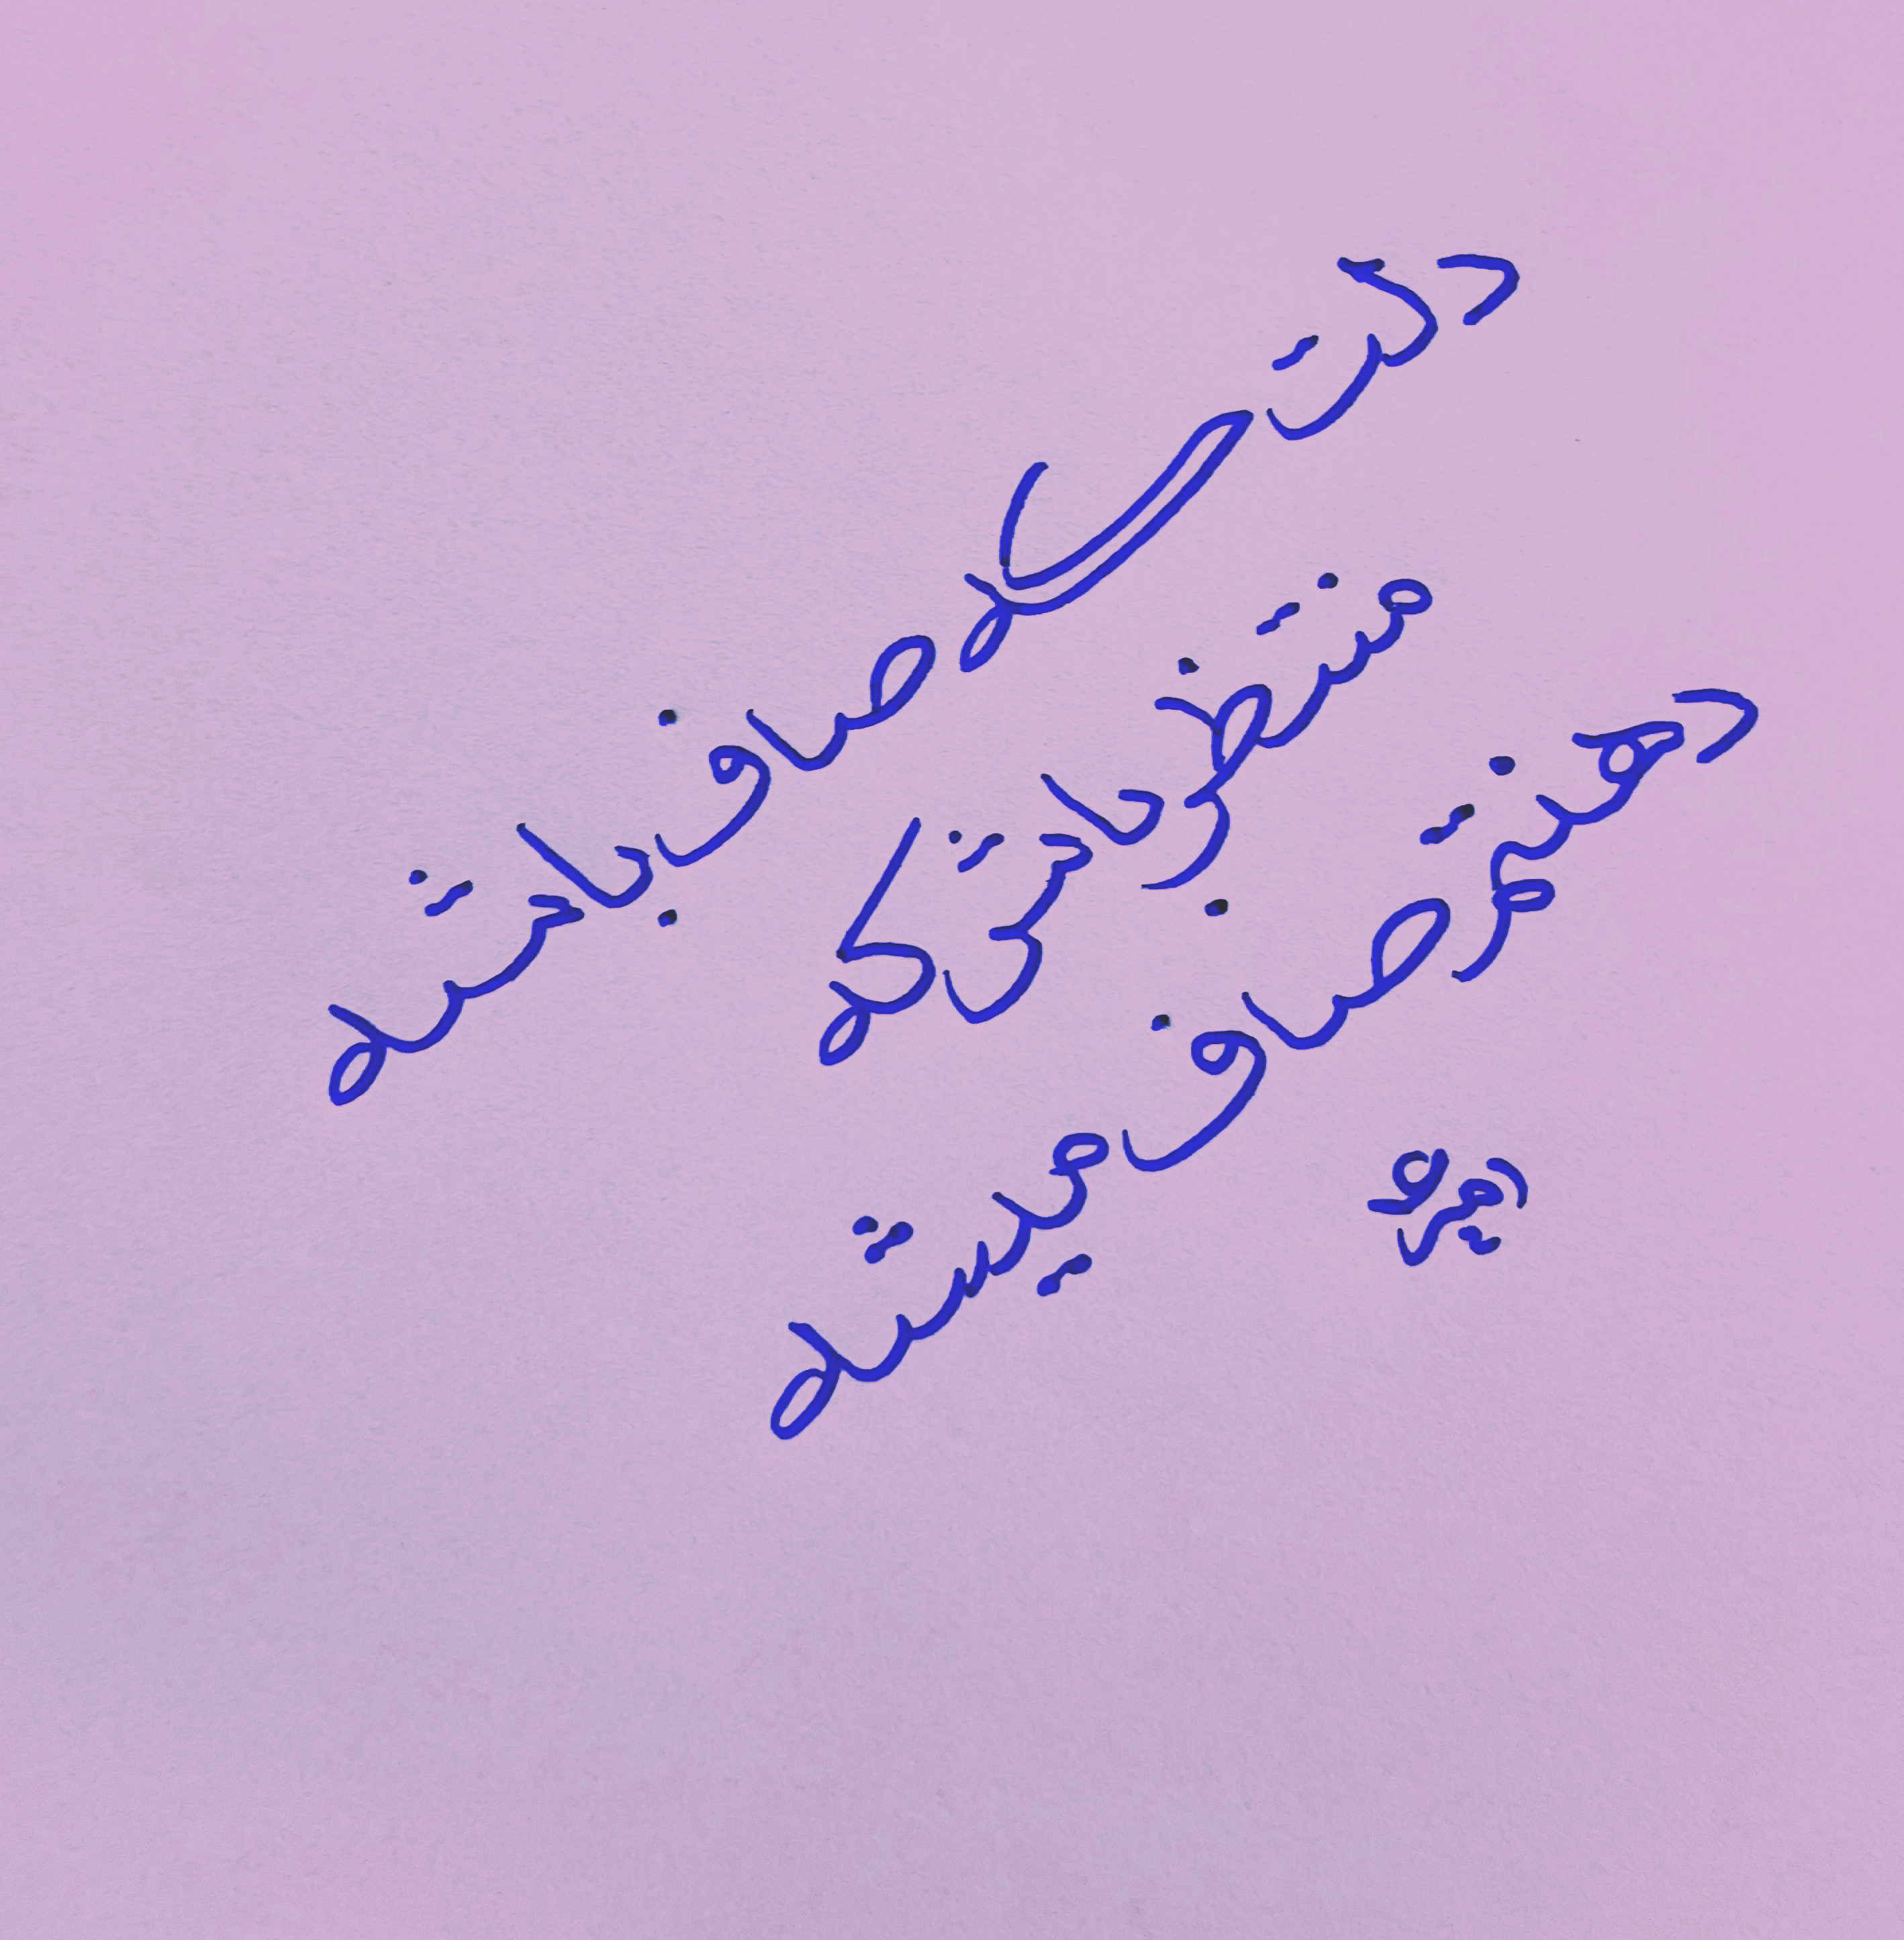 دلت که صاف باشه
منتظر باش که
دهنتم صاف میشه